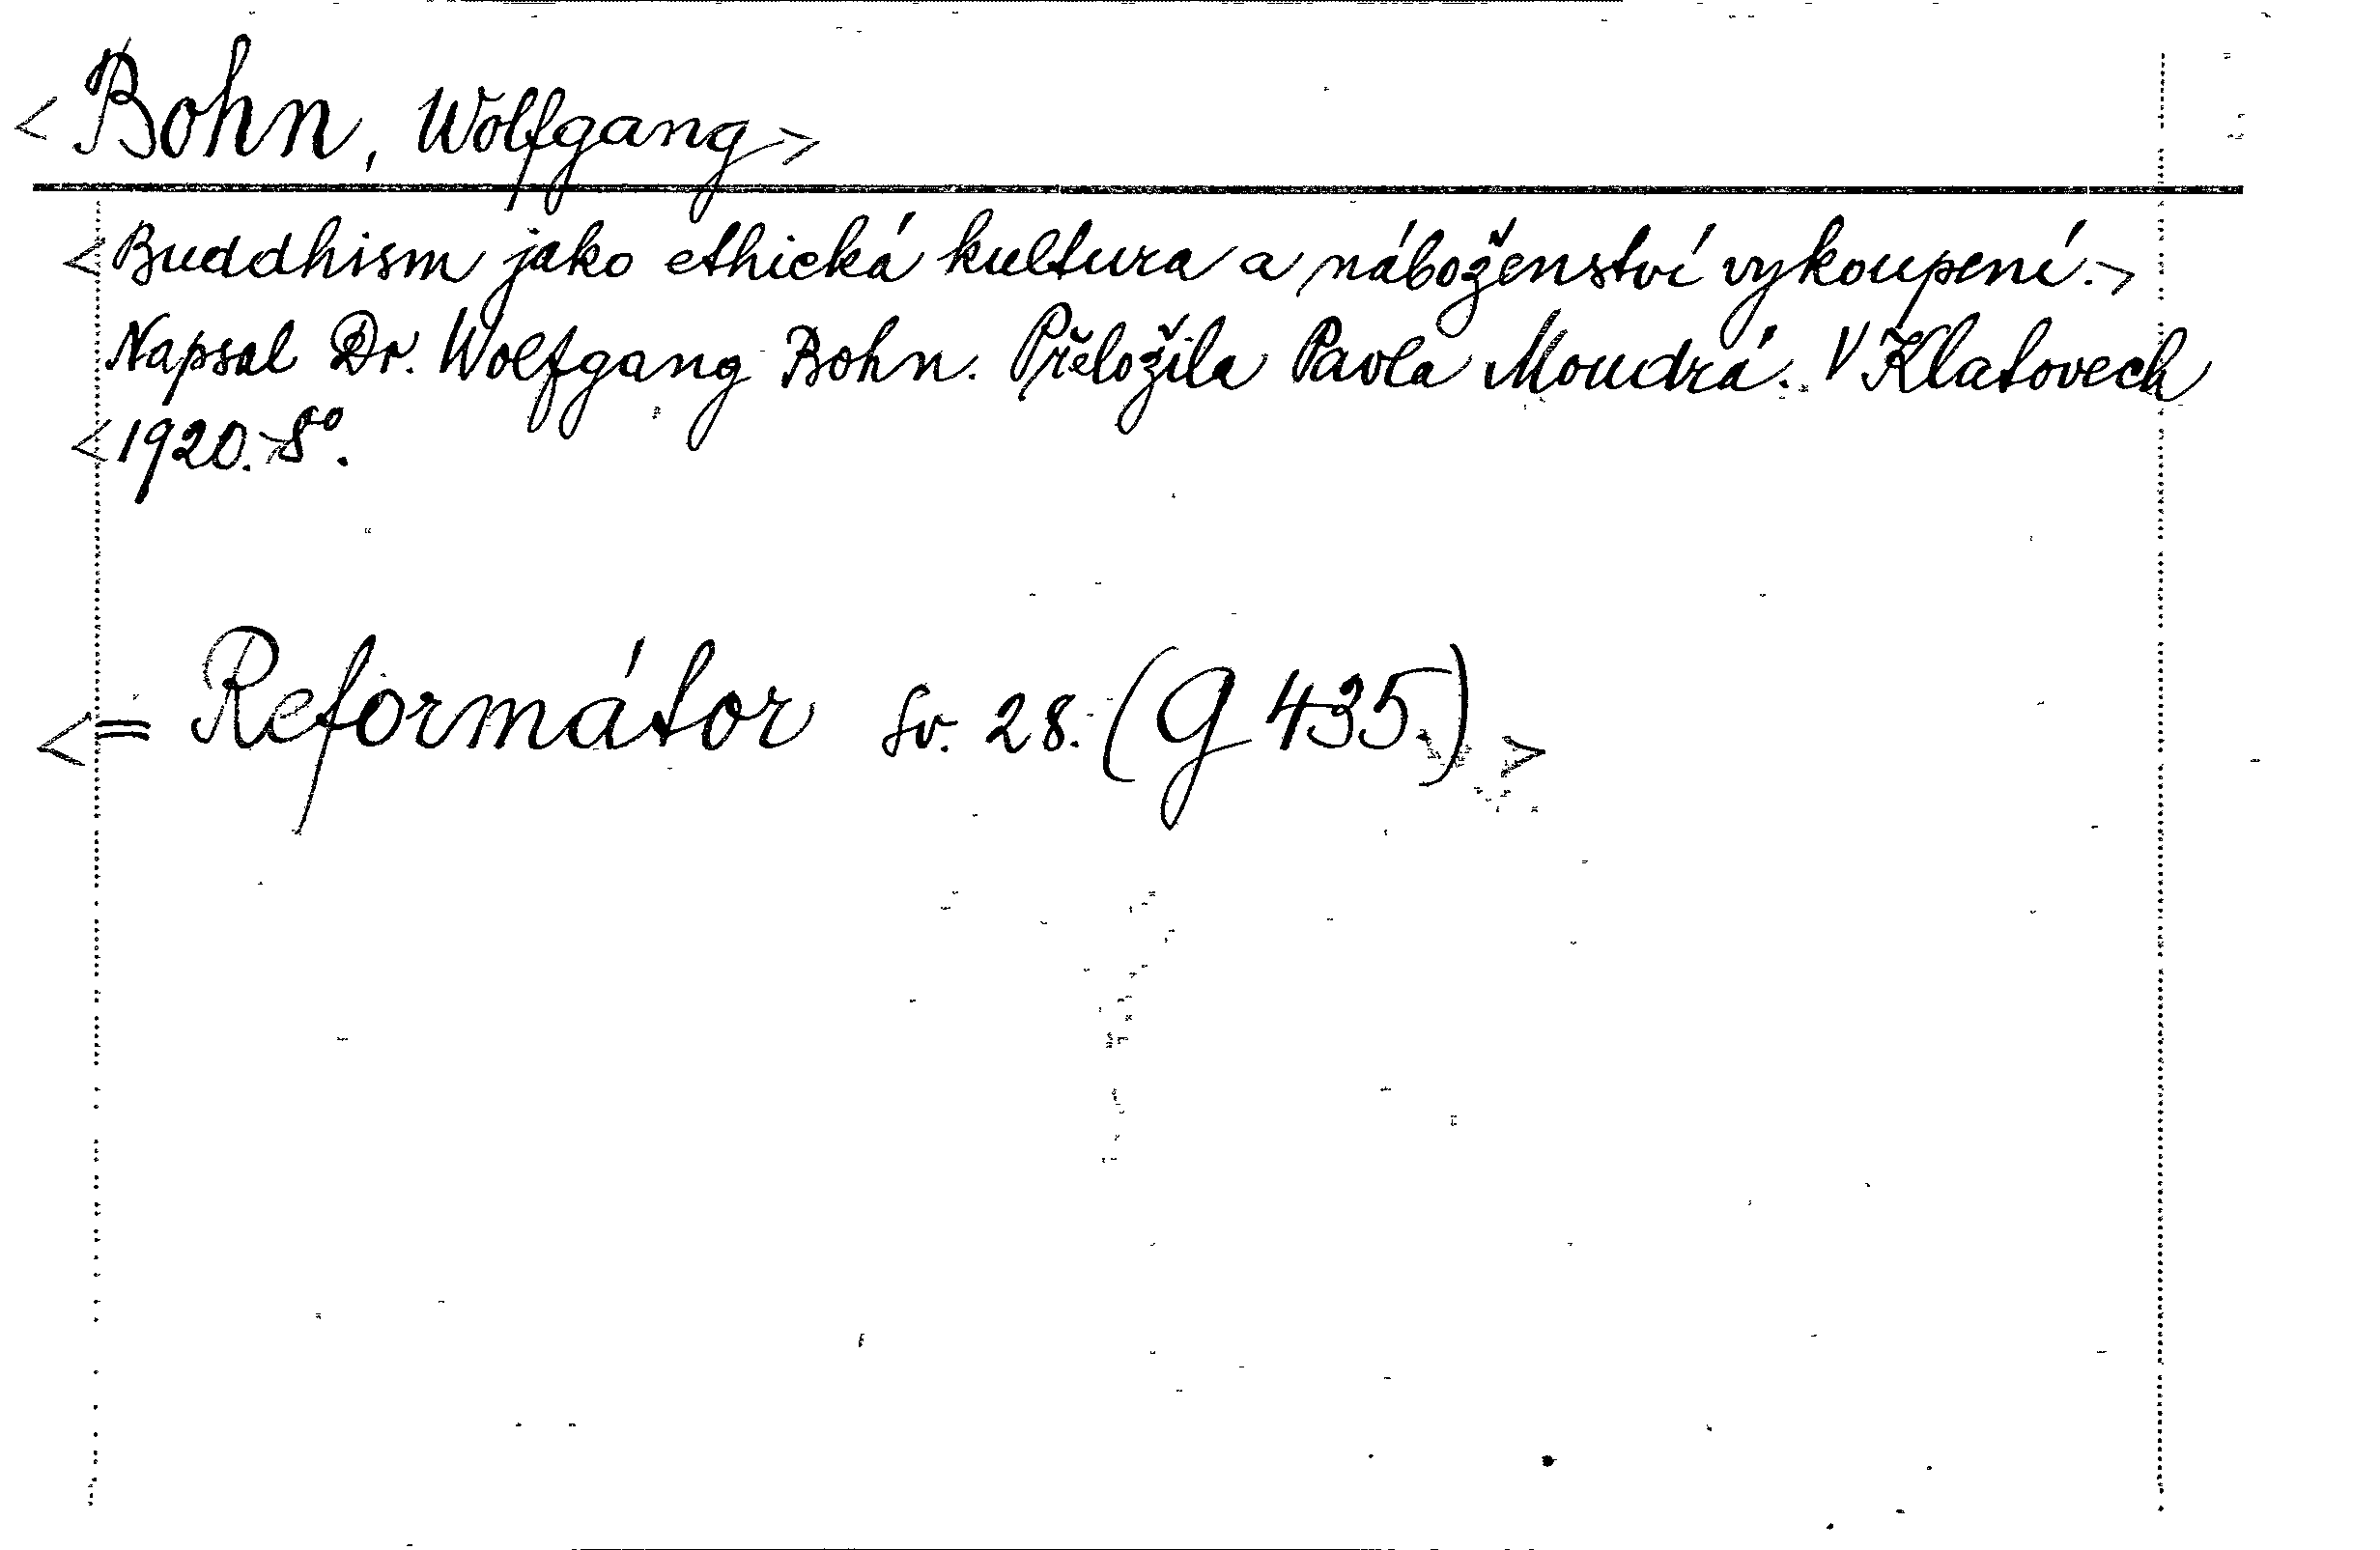 <Bohn, Wolfgang>
<Buddhism jako ethická kultura a náboženství vykoupení.>
Napsal Dr. Wolfgang Bohn. Přeložila Pavla Moudrá. V Klatovech
<1920.>8º.
<= Reformátor sv. 28. (G 435.)>